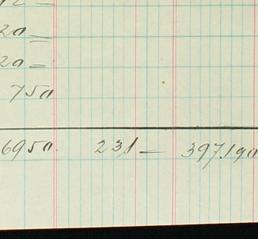 20=
20=
750
6950. 231 — 397.190